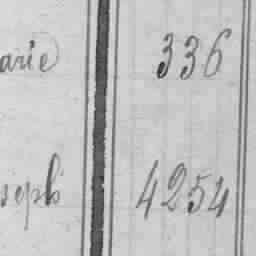 arie 336
seph 4254